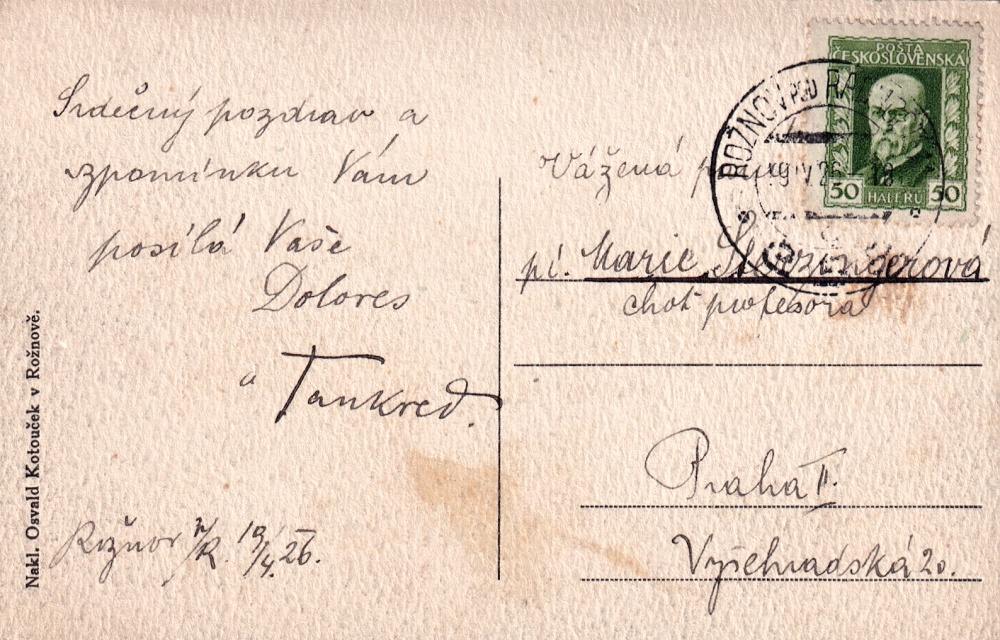 Srdečný pozdrav a
zpomínku Vám
posílá Vaše
Dolores
a Tankred.
Rožnov p/R. 19/4.26.
Nakl. Osvald Kotouček v Rožnově.
POŠTA
ČESKOSLOVENSKÁ
50 HALÉŘŮ 50
ROŽNOV POD
Vážená
pí. Marie
choť profesora
Praha II.
Vyšehradská 20.